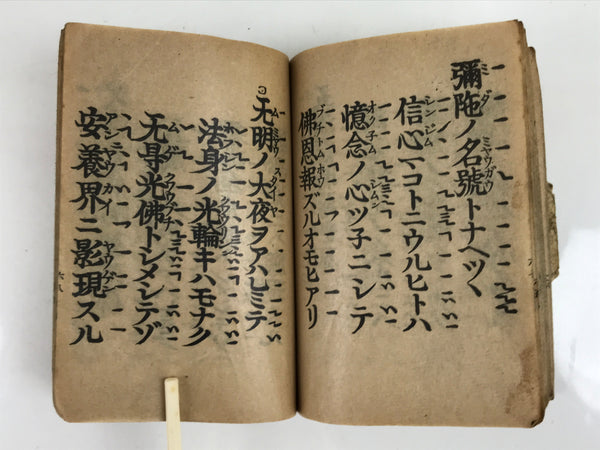 彌陁ノ名號トナヘツヽ
信心マコトニウルヒトハ
憶念ノ心ツ子ニシテ
佛恩報ズルオモヒアリ
无明ノ大夜ヲアハレミテ
法身ノ光輪キハモナク
无㝵光佛トシメシテゾ
安養界ニ影現スル